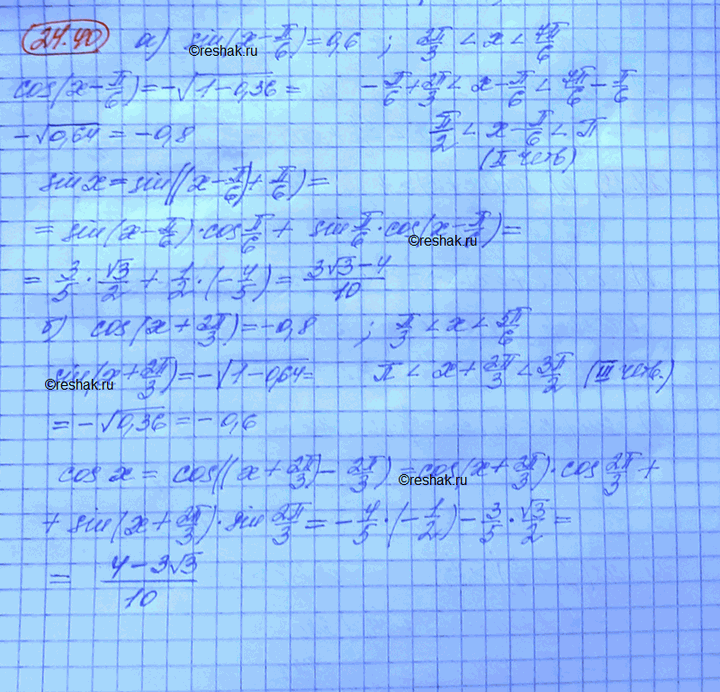 24.40 а) sin(x-π/6)=0,6 ; 2π/3 < x < 7π/6
©reshak.ru
cos(x-π/6)=-√(1-0,36)= -π/6+2π/3 < x-π/6 < 7π/6-π/6
-√0,64 = -0,8 π/2 < x-π/6 < π
(II четв)
sin x = sin((x-π/6)+π/6)=
= sin(x-π/6)·cos π/6 + sin π/6·cos(x-π/6)=
©reshak.ru
= 3/5·√3/2 + 1/2·(-4/5) = (3√3-4)/10
б) cos(x+2π/3)=-0,8 ; π/3 < x < 5π/6
sin(x+2π/3)=-√(1-0,64)= π < x+2π/3 < 3π/2 (III четв.)
©reshak.ru
= -√0,36 = -0,6
cos x = cos((x+2π/3)-2π/3)=cos(x+2π/3)·cos 2π/3 +
©reshak.ru
+ sin(x+2π/3)·sin 2π/3 = -4/5·(-1/2)-3/5·√3/2 =
= (4-3√3)/10